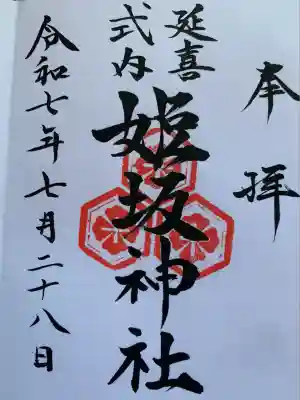 奉拝
延喜
式内
姫坂神社
令和七年七月二十八日